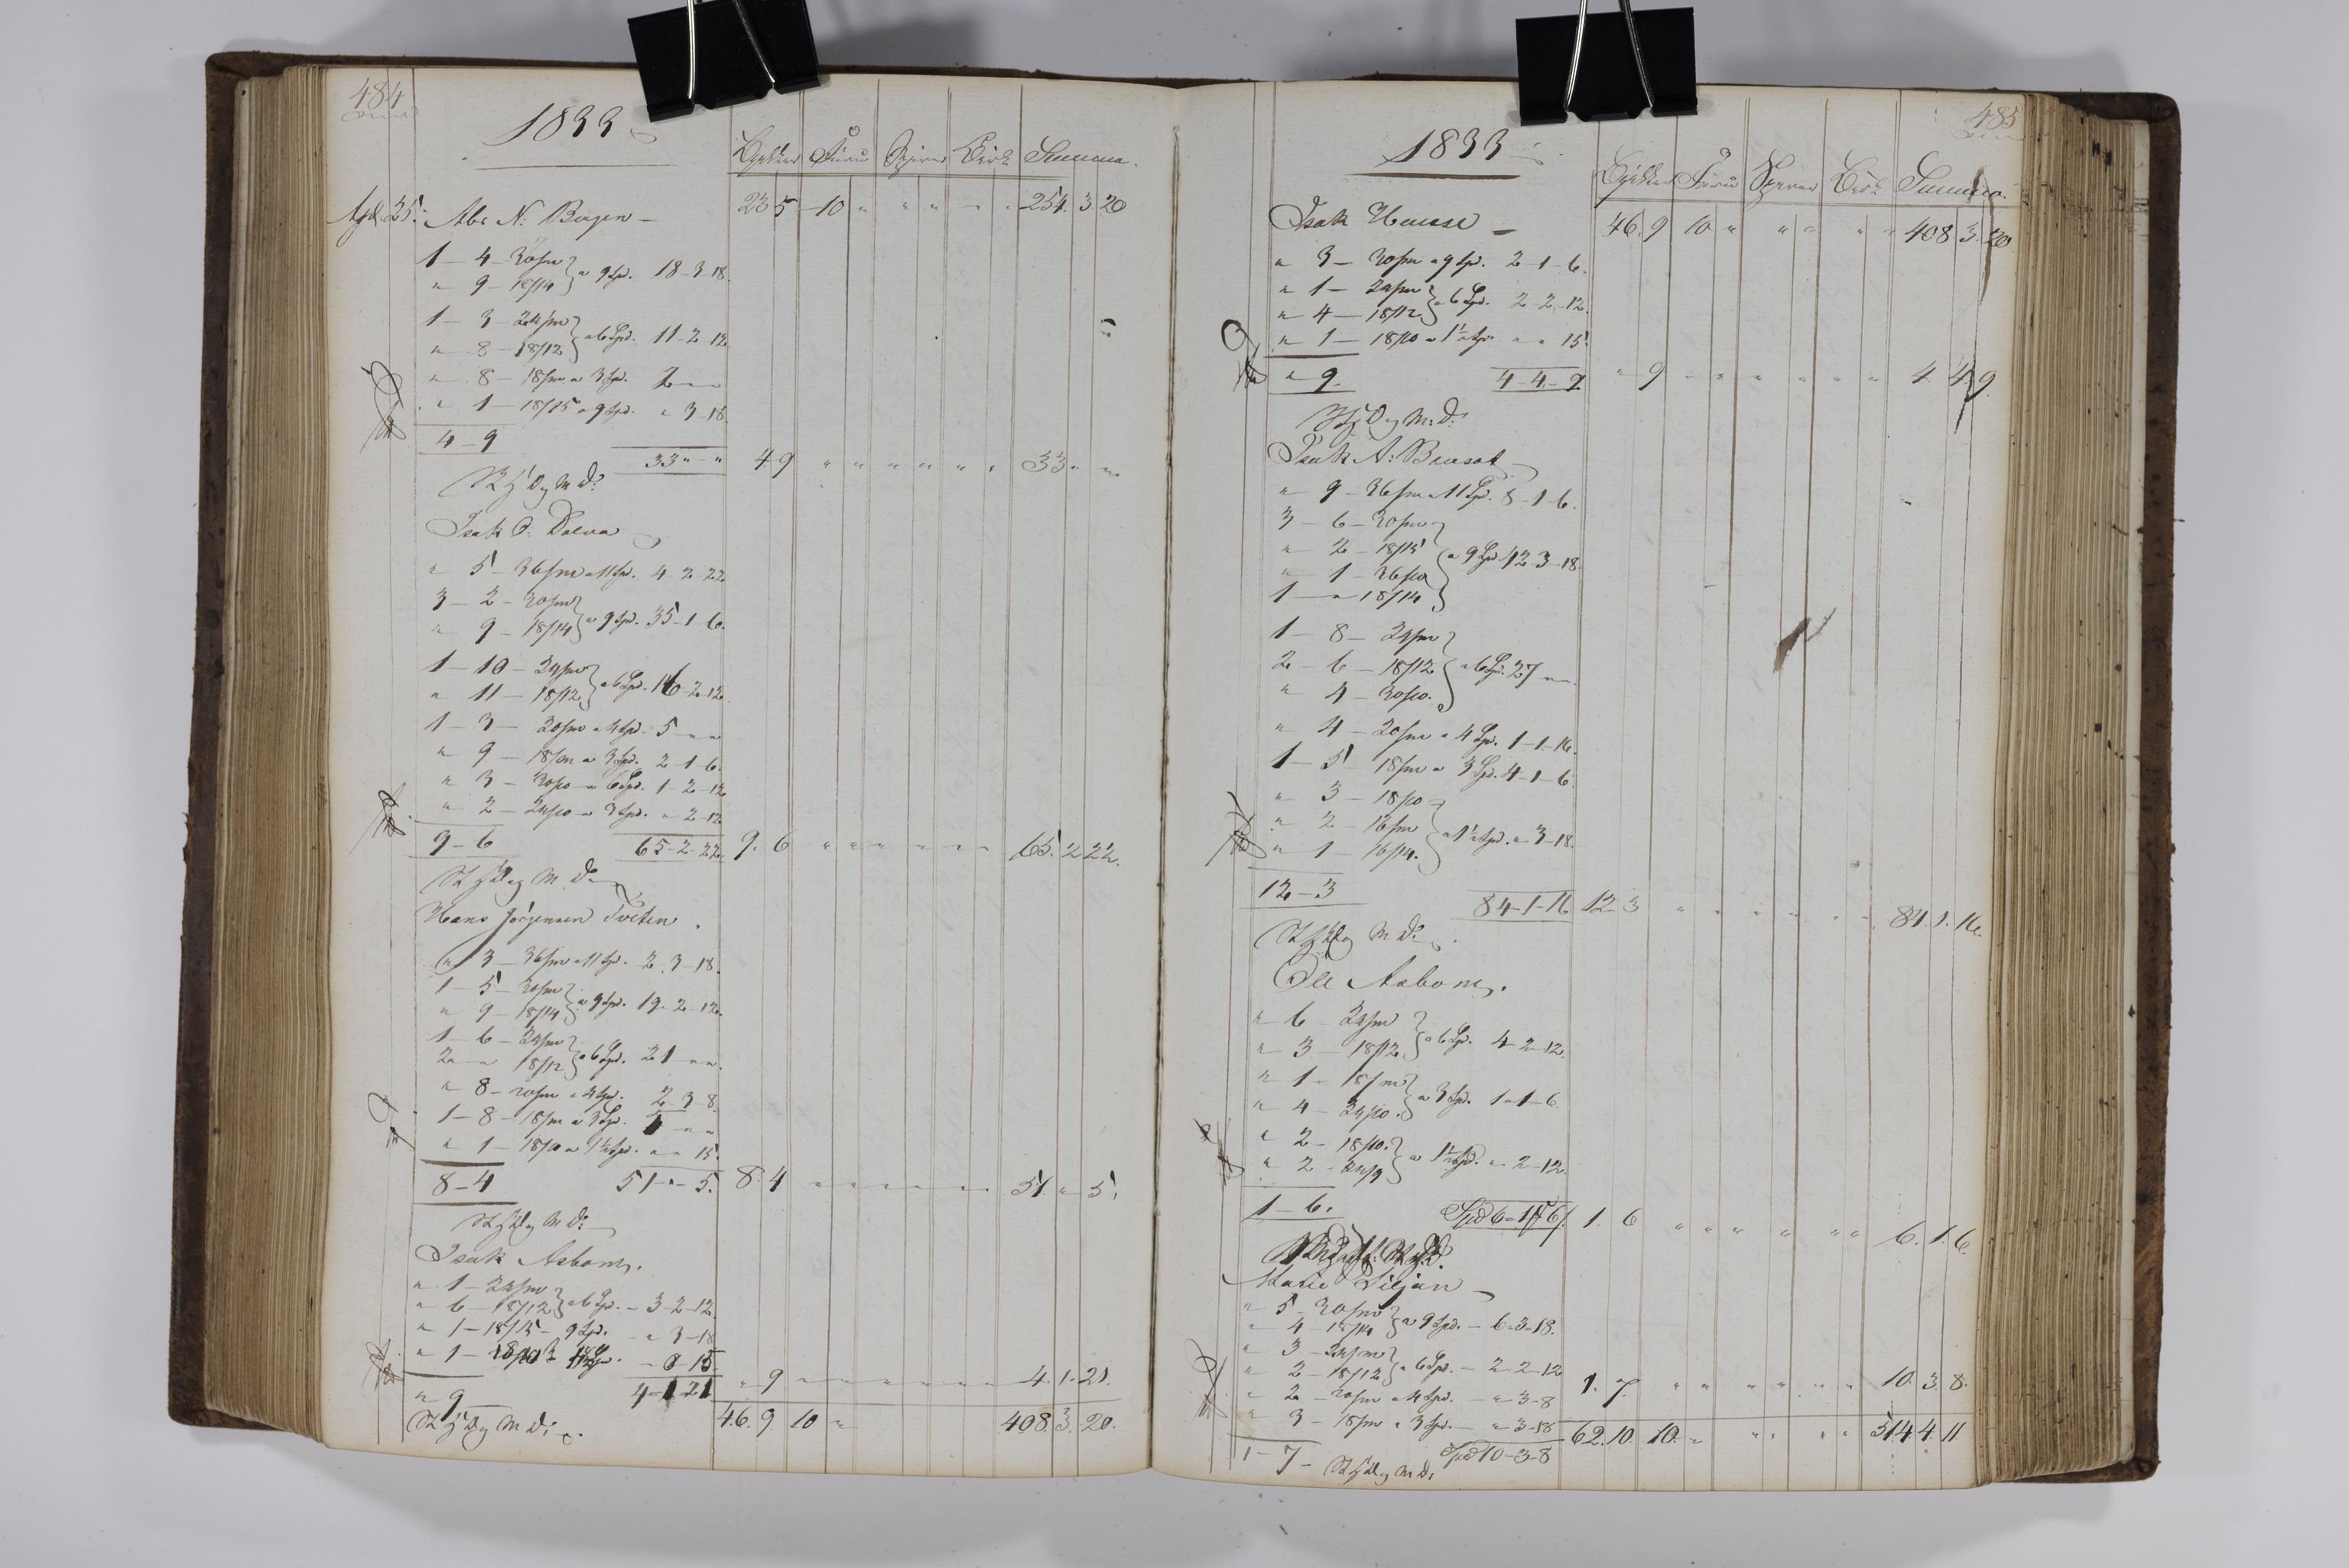 484
1833
Tylter Furu Sperrer Birk Summa
25. Abr. N. Bergen
23 5 10 " " " " " 254. 3 20
1 - 4 - 30/m
" 9 - 18/14 } a 9 Spd. 18-3-18.
1 - 3 - 24/m
" 8 - 18/12 } a 6 Spd. 11-2-12.
" 8 - 18/m a 3 Spd. 2 " "
" 1 - 18/15 a 9 Spd. " 3-18.
4-9
33 " " 4 9 " " " " " " 33 " "
Isak O. Dalva
" 5 - 36/m a 11 Spd. 4-2-22
3 - 2 - 30/m
" 9 - 18/14 } a 9 Spd. 35-1-6.
1 - 10 - 24/m
" 11 - 18/12 } a 6 Spd. 16-2-12.
1 - 3 - 20/m a 4 Spd. 5 " "
" 9 - 18/m a 3 Spd. 2-1-6.
" 3 - 30/10 a 6 Spd. 1-2-12
" 2 - 24/10 a 3 Spd. " 2-12
9-6 65-2-22 9. 6 " " " " " " 65. 2 22.
Hans Jörgensen Tveten.
" 3 - 36/m a 11 Spd. 2-3-18.
1 - 5 - 30/m
" 9 - 18/14 } a 9 Spd. 19-2-12.
1 - 6 - 24/m
2 " " 18/12 } a 6 Spd. 21 " "
" 8 - 20/m a 4 Spd. 2-3-8.
1 - 8 - 18/m a 3 Spd. 5 " "
" 1 - 18/10 a 1½ Spd. " " 15.
8-4 51 " 5. 8. 4 " " " " " " 51 " 5.
Isak Aasbom.
" 1 - 24/m
" 6 - 18/12 } a 6 Spd. - 3-2-12.
" 1 - 18/15 - 9 Spd. - " 3-18
" 1 - 18/10 - 1½ Spd. - 0-15
" 9 4-1 21 " 9 " " " " " " 4. 1. 21.
46. 9. 10 " 408. 3. 20.
485
1833
Tylter Furu Sperrer Birk Summa.
Isak Hausse 46. 9 10 " " " " " 408 3. 20
" 3 - 30/m a 9 Spd. 2-1-6.
" 1 - 24/m
" 4 - 18/12 } a 6 Spd. 2-2-12.
" 1 - 18/10 a 1½ Spd. " " 15.
" 9. 4-4-9 " 9 " " " " " " 4. 4. 9
Isak A. Brusat
" 9 - 36/m a 11 Spd. 8-1-6.
3 - 6 - 30/m
" 2 - 18/15
" 1 - 36/10
1 - " 18/14 } a 9 Spd. 42-3-18.
1 - 8 - 24/m
2 - 6 - 18/12
" 4 - 30/10. } a 6 Spd. 27 " "
" 4 - 20/m a 4 Spd. 1-1-16.
1 - 5 - 18/m a 3 Spd. 4-1-6
" 3 - 18/10
" 2 - 16/m
" 1 - 16/14. } a 1½ Spd. " 3-18.
12-3 84-1-16 12 3 " " " " " " 84. 1. 16.
Ole Aasbom.
" 6 - 24/m
" 3 - 18/12 } a 6 Spd. 4-2-12.
" 1 - 18/m
" 4 - 24/10. } a 3 Spd. 1-1-6
" 2 - 18/10.
" 2 - 24/9 } a 1½ Spd. " 2-12.
1-6. Spd 6-1-6 1. 6 " " " " " " 6. 1. 6.
Liljan
" 5 - 30/m
" 4 - 18/14 } a 9 Spd. - 6-3-18.
" 3 - 24/m
" 2 - 18/12 } a 6 Spd. - 2-2-12
" 2 - 20/m a 4 Spd. - " 3-8 1. 7. " " " " " " 10. 3. 8.
" 3 - 18/m a 3 Spd. - " 3-18 62. 10. 10. " " " " " 514. 4. 11
1-7 - Spd 10-3-8